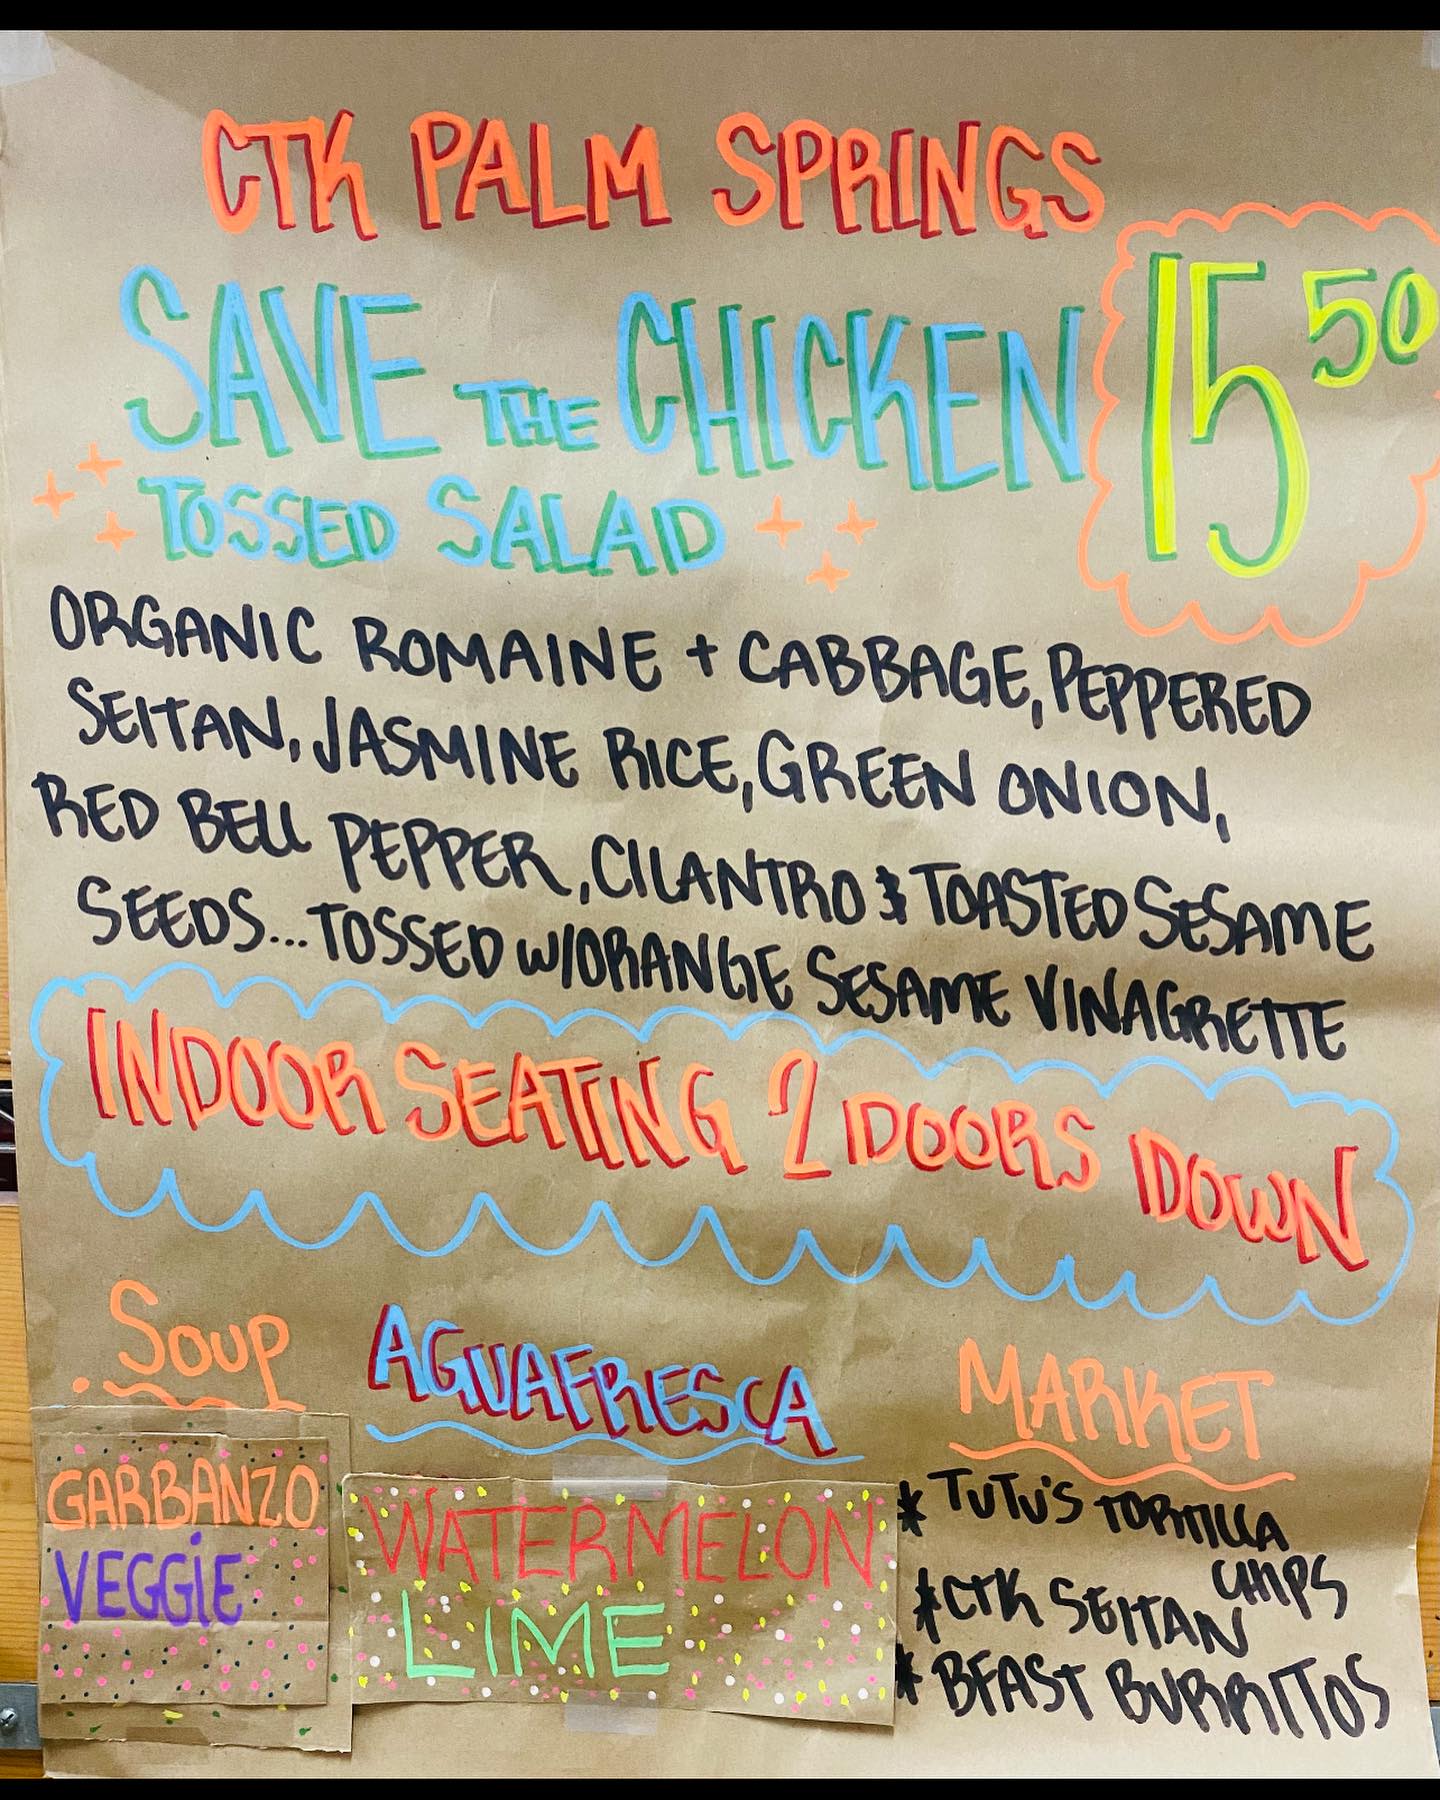 CTK PALM SPRINGS
SAVE THE CHICKEN 15 50
TOSSED SALAD
ORGANIC ROMAINE + CABBAGE, PEPPERED
SEITAN, JASMINE RICE, GREEN ONION,
RED BELL PEPPER, CILANTRO & TOASTED SESAME
SEEDS... TOSSED W/ORANGE SESAME VINAGRETTE
INDOOR SEATING 2 DOORS DOWN
SOUP
GARBANZO
VEGGIE
AGUAFRESCA
WATERMELON
LIME
MARKET
* TUTU'S TORTILLA
CHIPS
* CTK SEITAN
* BFAST BURRITOS